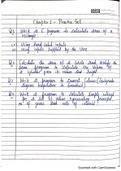 Chapter 1 - Practice Set
Q1 Write a C program to calculate area of a
rectangle:
(a) Using hard coded inputs
(b) Using inputs supplied by the user
Calculate the area of a circle and modify the
same program to calculate the volume of
a cylinder given its radius and height.
Write a program to convert Celsius (Centigrade
degrees temperature to Fahrenheit)
Write a program to calculate simple interest
for a set of values representing principal
of years and rate of interest
Scanned with CamScanner